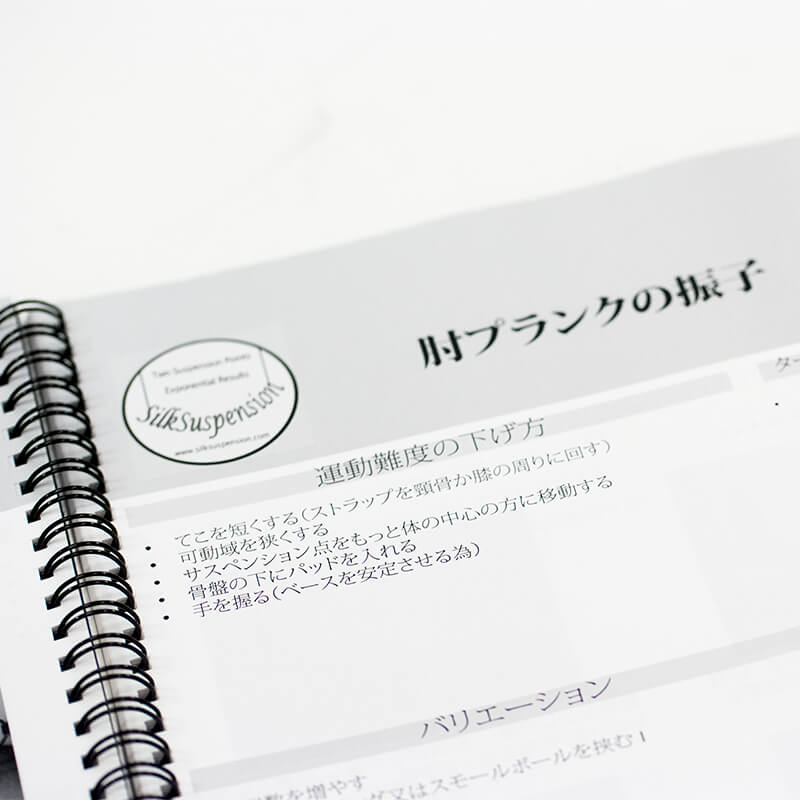 肘プランクの振子
Two Suspension Points
Exponential Results
SilkSuspension
www.silksuspension.com
ター
運動難度の下げ方
• てこを短くする(ストラップを頸骨か膝の周りに回す)
• 可動域を狭くする
• サスペンション点をもっと体の中心の方に移動する
• 骨盤の下にパッドを入れる
• 手を握る(ベースを安定させる為)
バリエーション
数を増やす
グ又はスモールボールを挟む